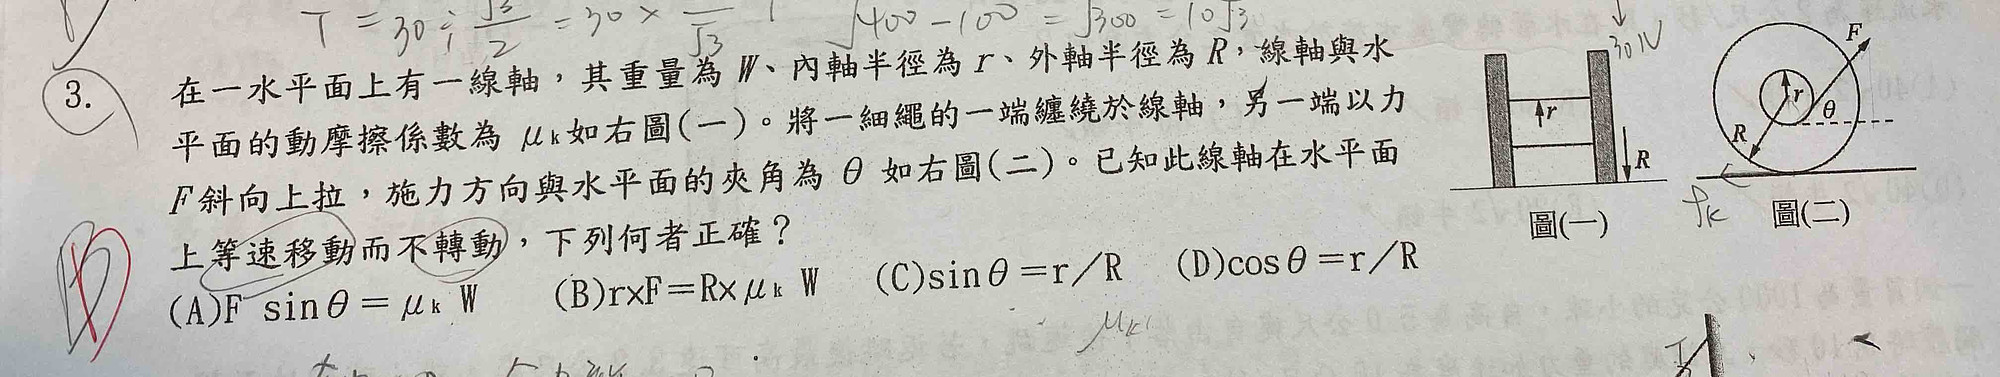 T = 30 ÷ √3/2 = 30 ×
√400-100 = √300 = 10√3
30N
3.
在一水平面上有一線軸，其重量為 W、內軸半徑為 r、外軸半徑為 R，線軸與水
平面的動摩擦係數為 μk如右圖(一)。將一細繩的一端纏繞於線軸，另一端以力
F斜向上拉，施力方向與水平面的夾角為 θ 如右圖(二)。已知此線軸在水平面
上等速移動而不轉動，下列何者正確？
(A)F sinθ＝μk W (B)r×F=R×μk W (C)sinθ＝r／R (D)cosθ＝r／R
r
R
圖(一)
F
r
θ
R
fk
圖(二)
μk